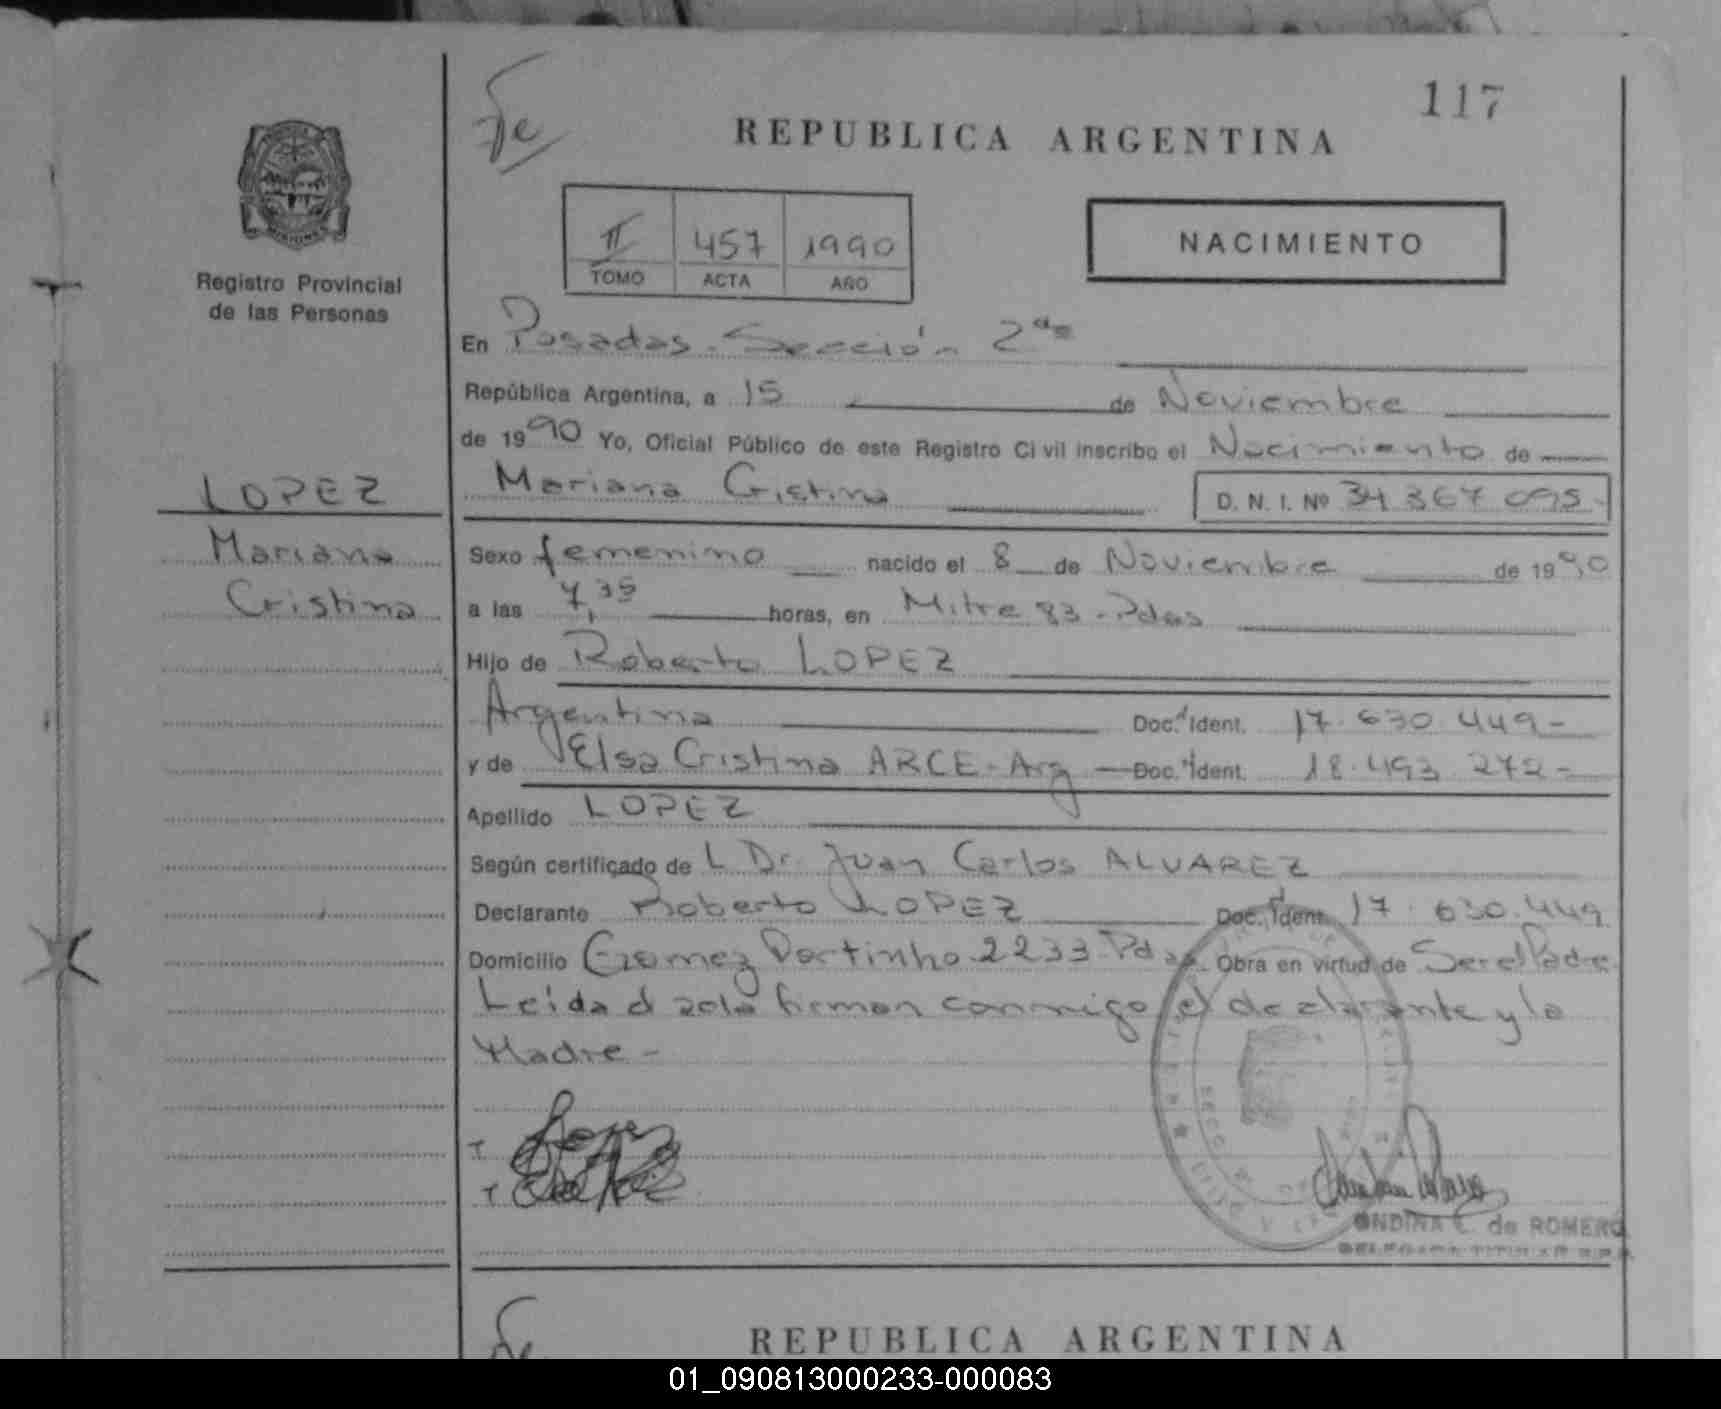 117
REPUBLICA ARGENTINA
MISIONES
Registro Provincial
de las Personas
II 457 1990
TOMO ACTA AÑO
NACIMIENTO
En Posadas - Sección 2da
República Argentina, a 15 de Noviembre
de 1990 Yo, Oficial Público de este Registro Civil inscribo el Nacimiento de
Mariana Cristina D. N. I. Nº 34 367 095-
LOPEZ
Mariana
Cristina
Sexo femenino nacido el 8 de Noviembre de 1990
a las 7,35 horas, en Mitre 83 - Pdas
Hijo de Roberto LOPEZ
Argentina Doc. Ident. 17.630.449-
y de Elsa Cristina ARCE - Arg Doc. Ident. 18.493 272-
Apellido LOPEZ
Según certificado de L Dr. Juan Carlos ALVAREZ
Declarante Roberto LOPEZ Doc. Ident. 17.630.449
Domicilio Gomez Portinho 2233 - Pdas Obra en virtud de Ser el Padre
Leida el acta firman conmigo el declarante y la
Madre -
ONDINA E. de ROMERO
DELEGADA TITULAR R.P.P.
REPUBLICA ARGENTINA
01_090813000233-000083